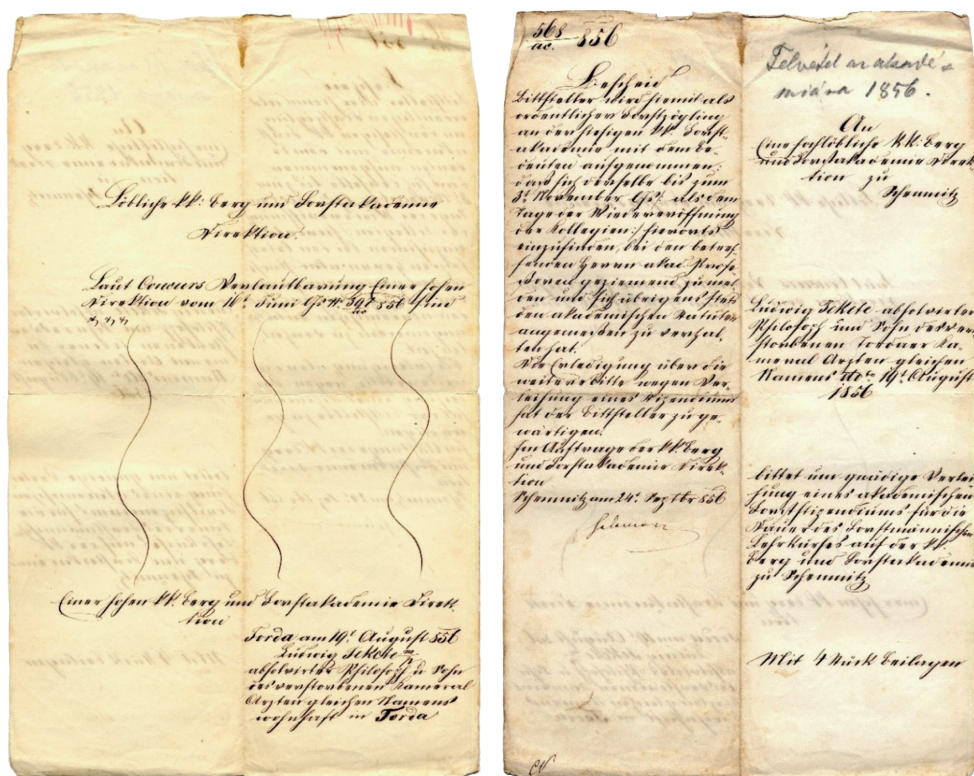 Löbliche kk: Berg und Forstakademie
Direktion!
Laut Concurs Verlautbarung Einer hohen
Direktion vom 16t. Juni
856 sind
Einer hohen kk. Berg und Forstakademie Direk-
tion
Torda am 19t August 856
Ludwig Fekete
absolvirter Philosoph u Sohn
des verstorbenen Kameral
Arzten gleichen Namens
wohnhaft in Torda
568
ac. 856
Bescheid
Bittsteller wird hiemit als
ordentlicher Forstzögling
an der hiesigen kk. Forst-
akademie mit dem Be-
deuten aufgenommen:
daß sich derselbe bis zum
November als dem
Tage der Wiedereröffnung
der Kollegien hierorts
einzufinden, bei den betref-
fenden Herrn akad. Profe-
ßoren geziemend zu mel-
den und sich übrigens stets
den akademischen Statuten
angemessen zu verhal-
ten hat.
Die Erledigung über die
weitere Bitte wegen Ver-
leihung eines Stipendiums
hat der Bittsteller zu ge-
wärtigen.
Im Auftrage der kk Berg
und Forstakademie Direk-
tion
Schemnitz am 24t. Septbr 856
Felvétel az akadé-
miára 1856.
An
Eine hochlöbliche kk: Berg
und Forstakademie Direk-
tion zu
Schemnitz
Ludwig Fekete absolvirter
Philosoph und Sohn des ver-
storbenen Tordaer Ka-
meral Arzten gleichen
Namens ddto 19t August
1856
bittet um gnädige Verlei-
hung eines akademischen
Forststipendiums für die
Dauer des Forstmännischen
Lehrkurses auf der kk.
Berg und Forstakademie
zu Schemnitz
Mit 4 Stück Beilagen